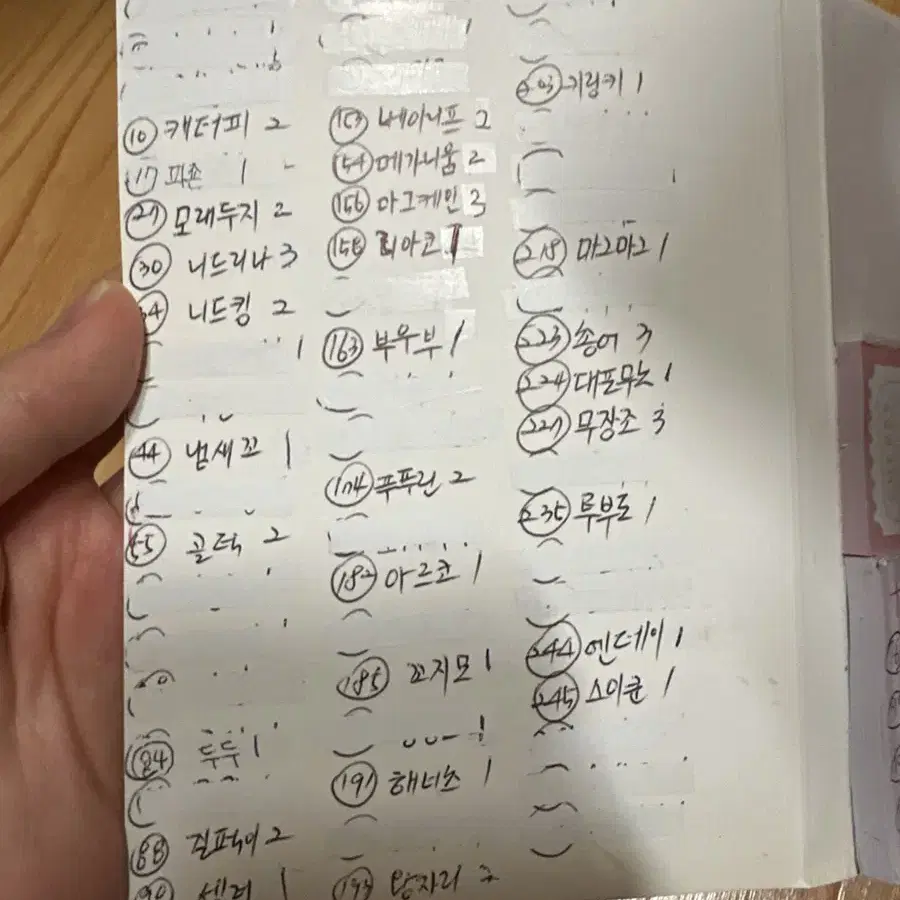 10 캐터피 2
17 피죤 1
27 모래두지 2
30 니드리나 3
34 니드킹 2
44 냄새꼬 1
55 골덕 2
84 두두 1
88 질퍽이 2
90
153 베이니프 2
154 메가니움 2
156 마그케인 3
158 리아코 1
163 부우부 1
174 푸푸린 2
182 아르코 1
185 꼬지모 1
191 해너츠 1
193 왕자리 2
203 키링키 1
218 마그마그 1
223 총어 3
224 대포무노 1
227 무장조 3
235 루부도 1
244 엔테이 1
245 스이쿤 1